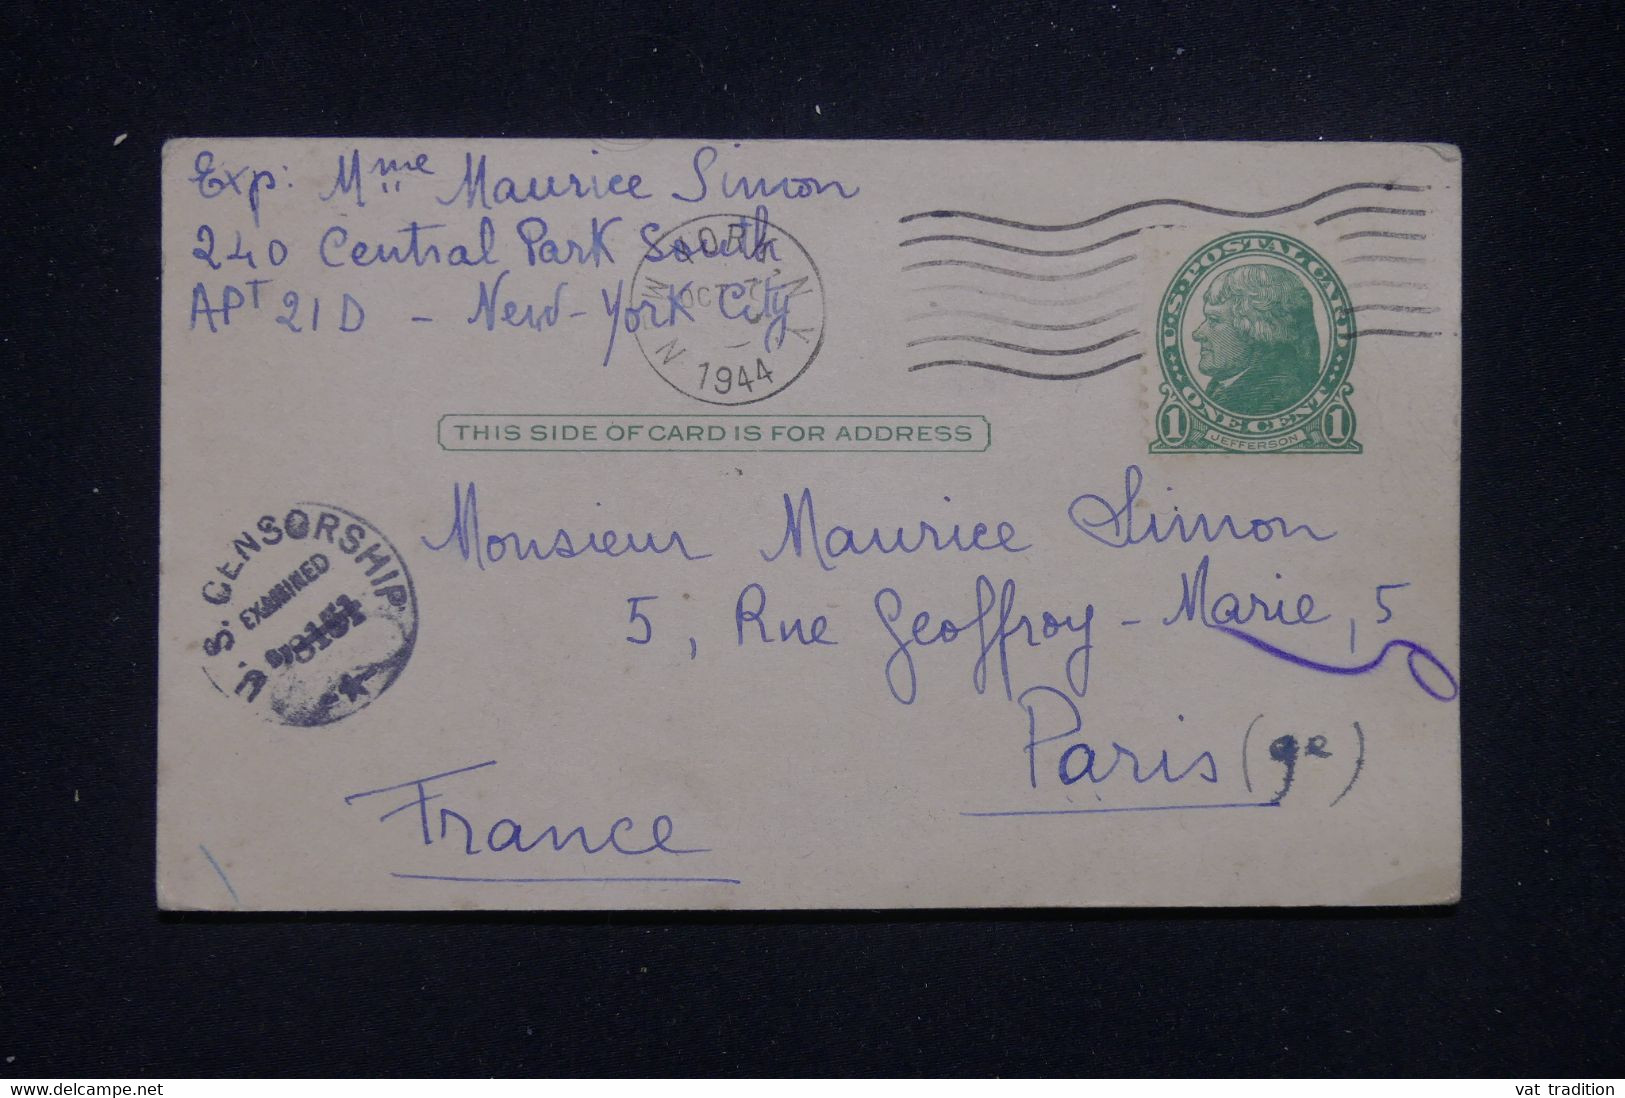 Exp: Mme Maurice Simon
240 Central Park South
APT 21D - New-York City
NEW YORK, N.Y.
OCT
1944
U.S. POSTAL CARD
1 ONE CENT 1
JEFFERSON
THIS SIDE OF CARD IS FOR ADDRESS
U. S. CENSORSHIP
EXAMINED
By
Monsieur Maurice Simon
5, Rue Geoffroy-Marie, 5
Paris (9e)
France
delcampe.net
vat tradition